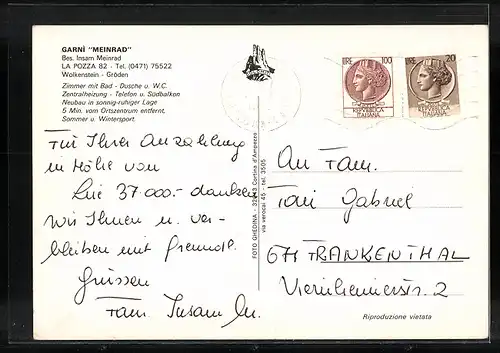 GARNÌ "MEINRAD"
Bes. Insam Meinrad
LA POZZA 82 - Tel. (0471) 75522
Wolkenstein - Gröden
Zimmer mit Bad - Dusche u. W.C.
Zentralheizung - Telefon u. Südbalkon
Neubau in sonnig-ruhiger Lage
5 Min. vom Ortszentrum entfernt.
Sommer u. Wintersport.
Für Ihrer Anzahlung
in Höhe von
Lire 37.000.- danken
wir Ihnen u. ver-
bleiben mit freundl.
Grüssen
Fam. Insam M.
FOTO GHEDINA - 32043 Cortina d'Ampezzo
via verocai 45 - tel. 3505
LIRE 100
REPUBBLICA
ITALIANA
LIRE 20
REPUBBLICA
ITALIANA
An Fam.
Gabriel
67 FRANKENTHAL
2
Riproduzione vietata